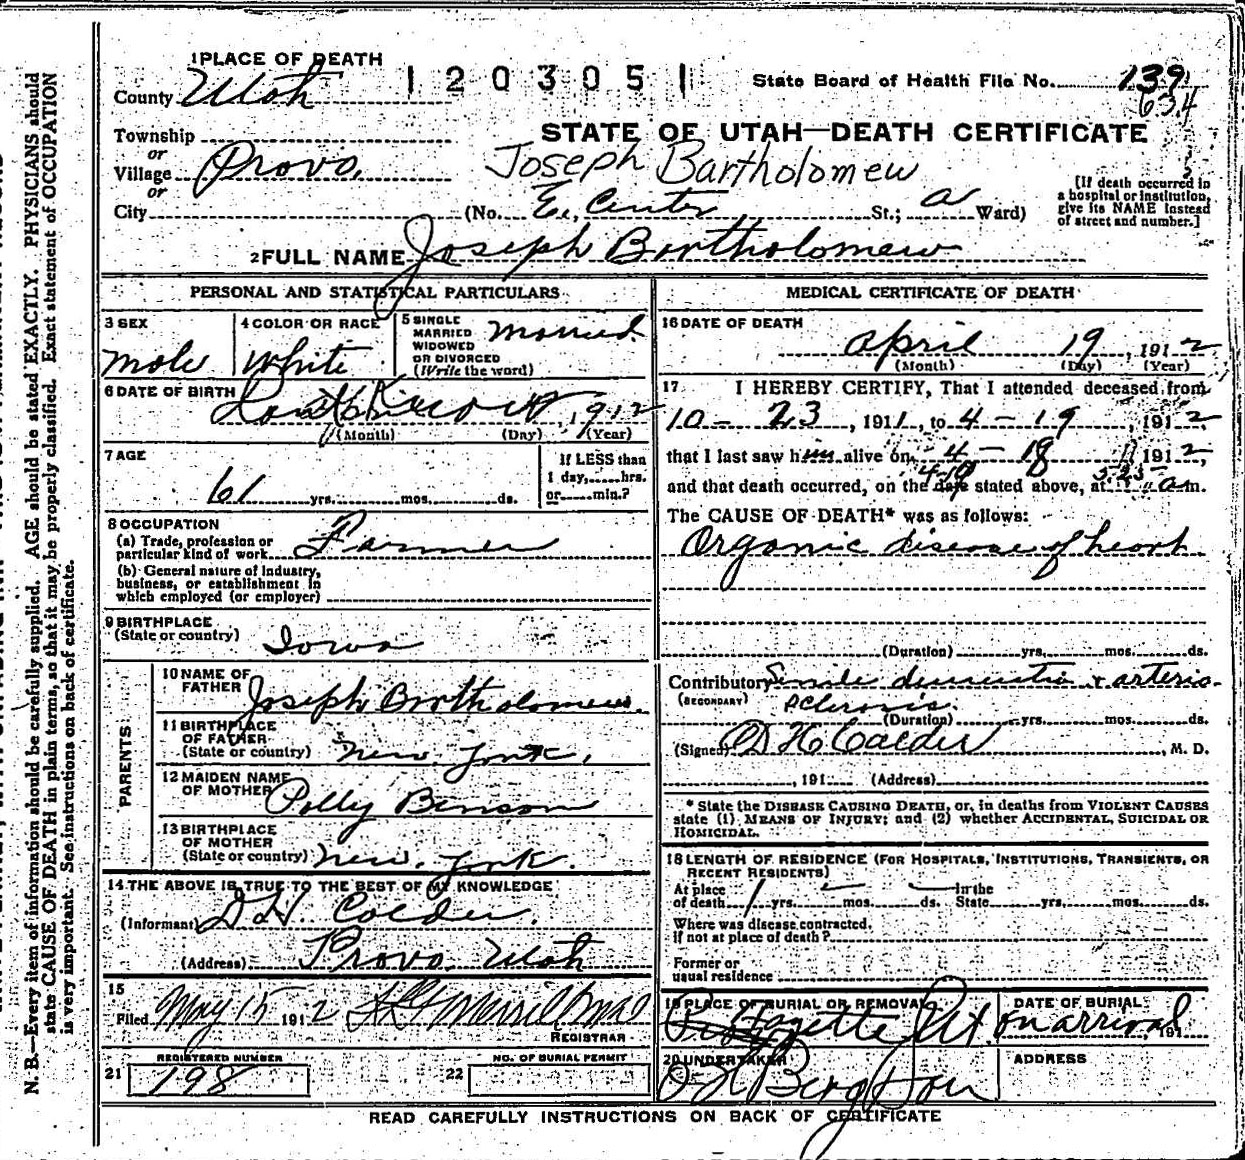 1 PLACE OF DEATH
1 2 0 3 0 5 1
State Board of Health File No. 139
634
County Utah
STATE OF UTAH—DEATH CERTIFICATE
Township
or
Village Provo.
Joseph Bartholomew
or
City (No. E. Center St.; Ward)
[If death occurred in
a hospital or institution,
give its NAME instead
of street and number.]
2 FULL NAME Joseph Bartholomew
PERSONAL AND STATISTICAL PARTICULARS
3 SEX
male
4 COLOR OR RACE
White
5 SINGLE
MARRIED
WIDOWED
OR DIVORCED
(Write the word)
married.
6 DATE OF BIRTH
1912
(Month) (Day) (Year)
7 AGE
61 yrs. mos. ds.
If LESS than
1 day, hrs.
or min.?
8 OCCUPATION
(a) Trade, profession or
particular kind of work Farmer
(b) General nature of industry,
business, or establishment in
which employed (or employer)
9 BIRTHPLACE
(State or country) Iowa
PARENTS
10 NAME OF
FATHER Joseph Bartholomew.
11 BIRTHPLACE
OF FATHER
(State or country) New York.
12 MAIDEN NAME
OF MOTHER Polly Benson
13 BIRTHPLACE
OF MOTHER
(State or country) New York.
14 THE ABOVE IS TRUE TO THE BEST OF MY KNOWLEDGE
(Informant) D H. Calder.
(Address) Provo Utah
15
Filed May 15 1912
REGISTRAR
REGISTERED NUMBER
21 198
NO. OF BURIAL PERMIT
22
MEDICAL CERTIFICATE OF DEATH
16 DATE OF DEATH
April 19, 1912
(Month) (Day) (Year)
17 I HEREBY CERTIFY, That I attended deceased from
10 - 23, 1911, to 4 - 19, 1912.
that I last saw him alive on 4 - 18 1912,
and that death occurred, on the date stated above, at 5-25 a m.
4-19
The CAUSE OF DEATH* was as follows:
Organic disease of heart
(Duration) yrs. mos. ds.
Contributory Senile dementia & arterio-
(SECONDARY) sclerosis.
(Duration) yrs. mos. ds.
(Signed) D H Calder, M. D.
, 191 (Address)
* State the DISEASE CAUSING DEATH, or, in deaths from VIOLENT CAUSES
state (1) MEANS OF INJURY; and (2) whether ACCIDENTAL, SUICIDAL OR
HOMICIDAL.
18 LENGTH OF RESIDENCE (FOR HOSPITALS, INSTITUTIONS, TRANSIENTS, OR
RECENT RESIDENTS)
At place
of death 1 yrs. mos. ds.
In the
State yrs. mos. ds.
Where was disease contracted,
if not at place of death?
Former or
usual residence
19 PLACE OF BURIAL OR REMOVAL
Fayette Ut.
DATE OF BURIAL
on arrival, 191
20 UNDERTAKER
Berg & Son
ADDRESS
READ CAREFULLY INSTRUCTIONS ON BACK OF CERTIFICATE
N. B.—Every item of information should be carefully supplied. AGE should be stated EXACTLY. PHYSICIANS should
state CAUSE OF DEATH in plain terms, so that it may be properly classified. Exact statement of OCCUPATION
is very important. See instructions on back of certificate.